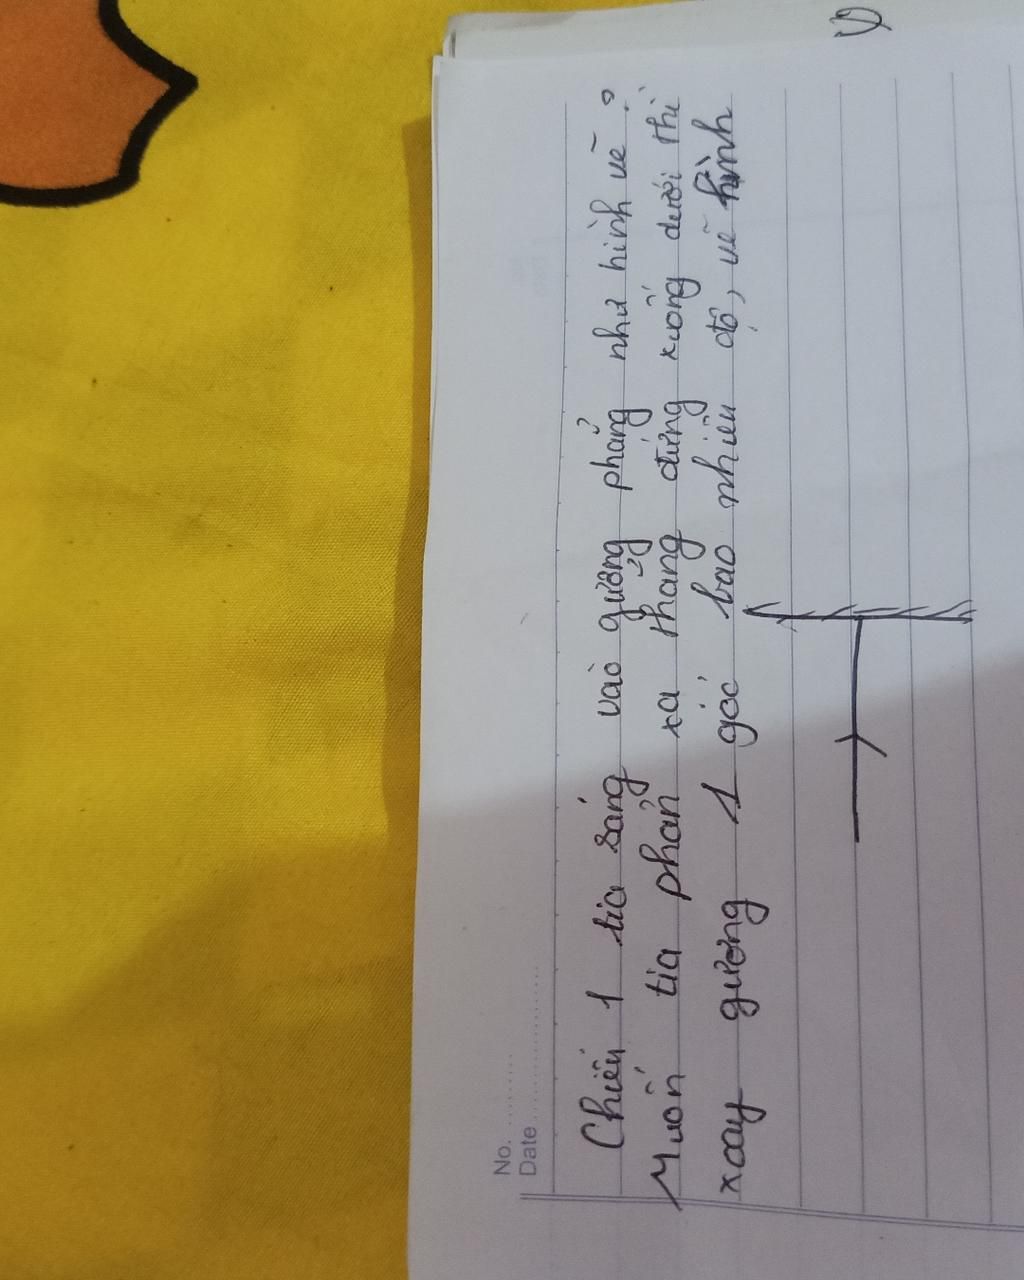 No. ............
Date ........................
Chiếu 1 tia sáng vào gương phẳng như hình vẽ :
Muốn tia phản xạ thẳng đứng xuống dưới thì
xoay gương 1 góc bao nhiêu độ, vẽ hình